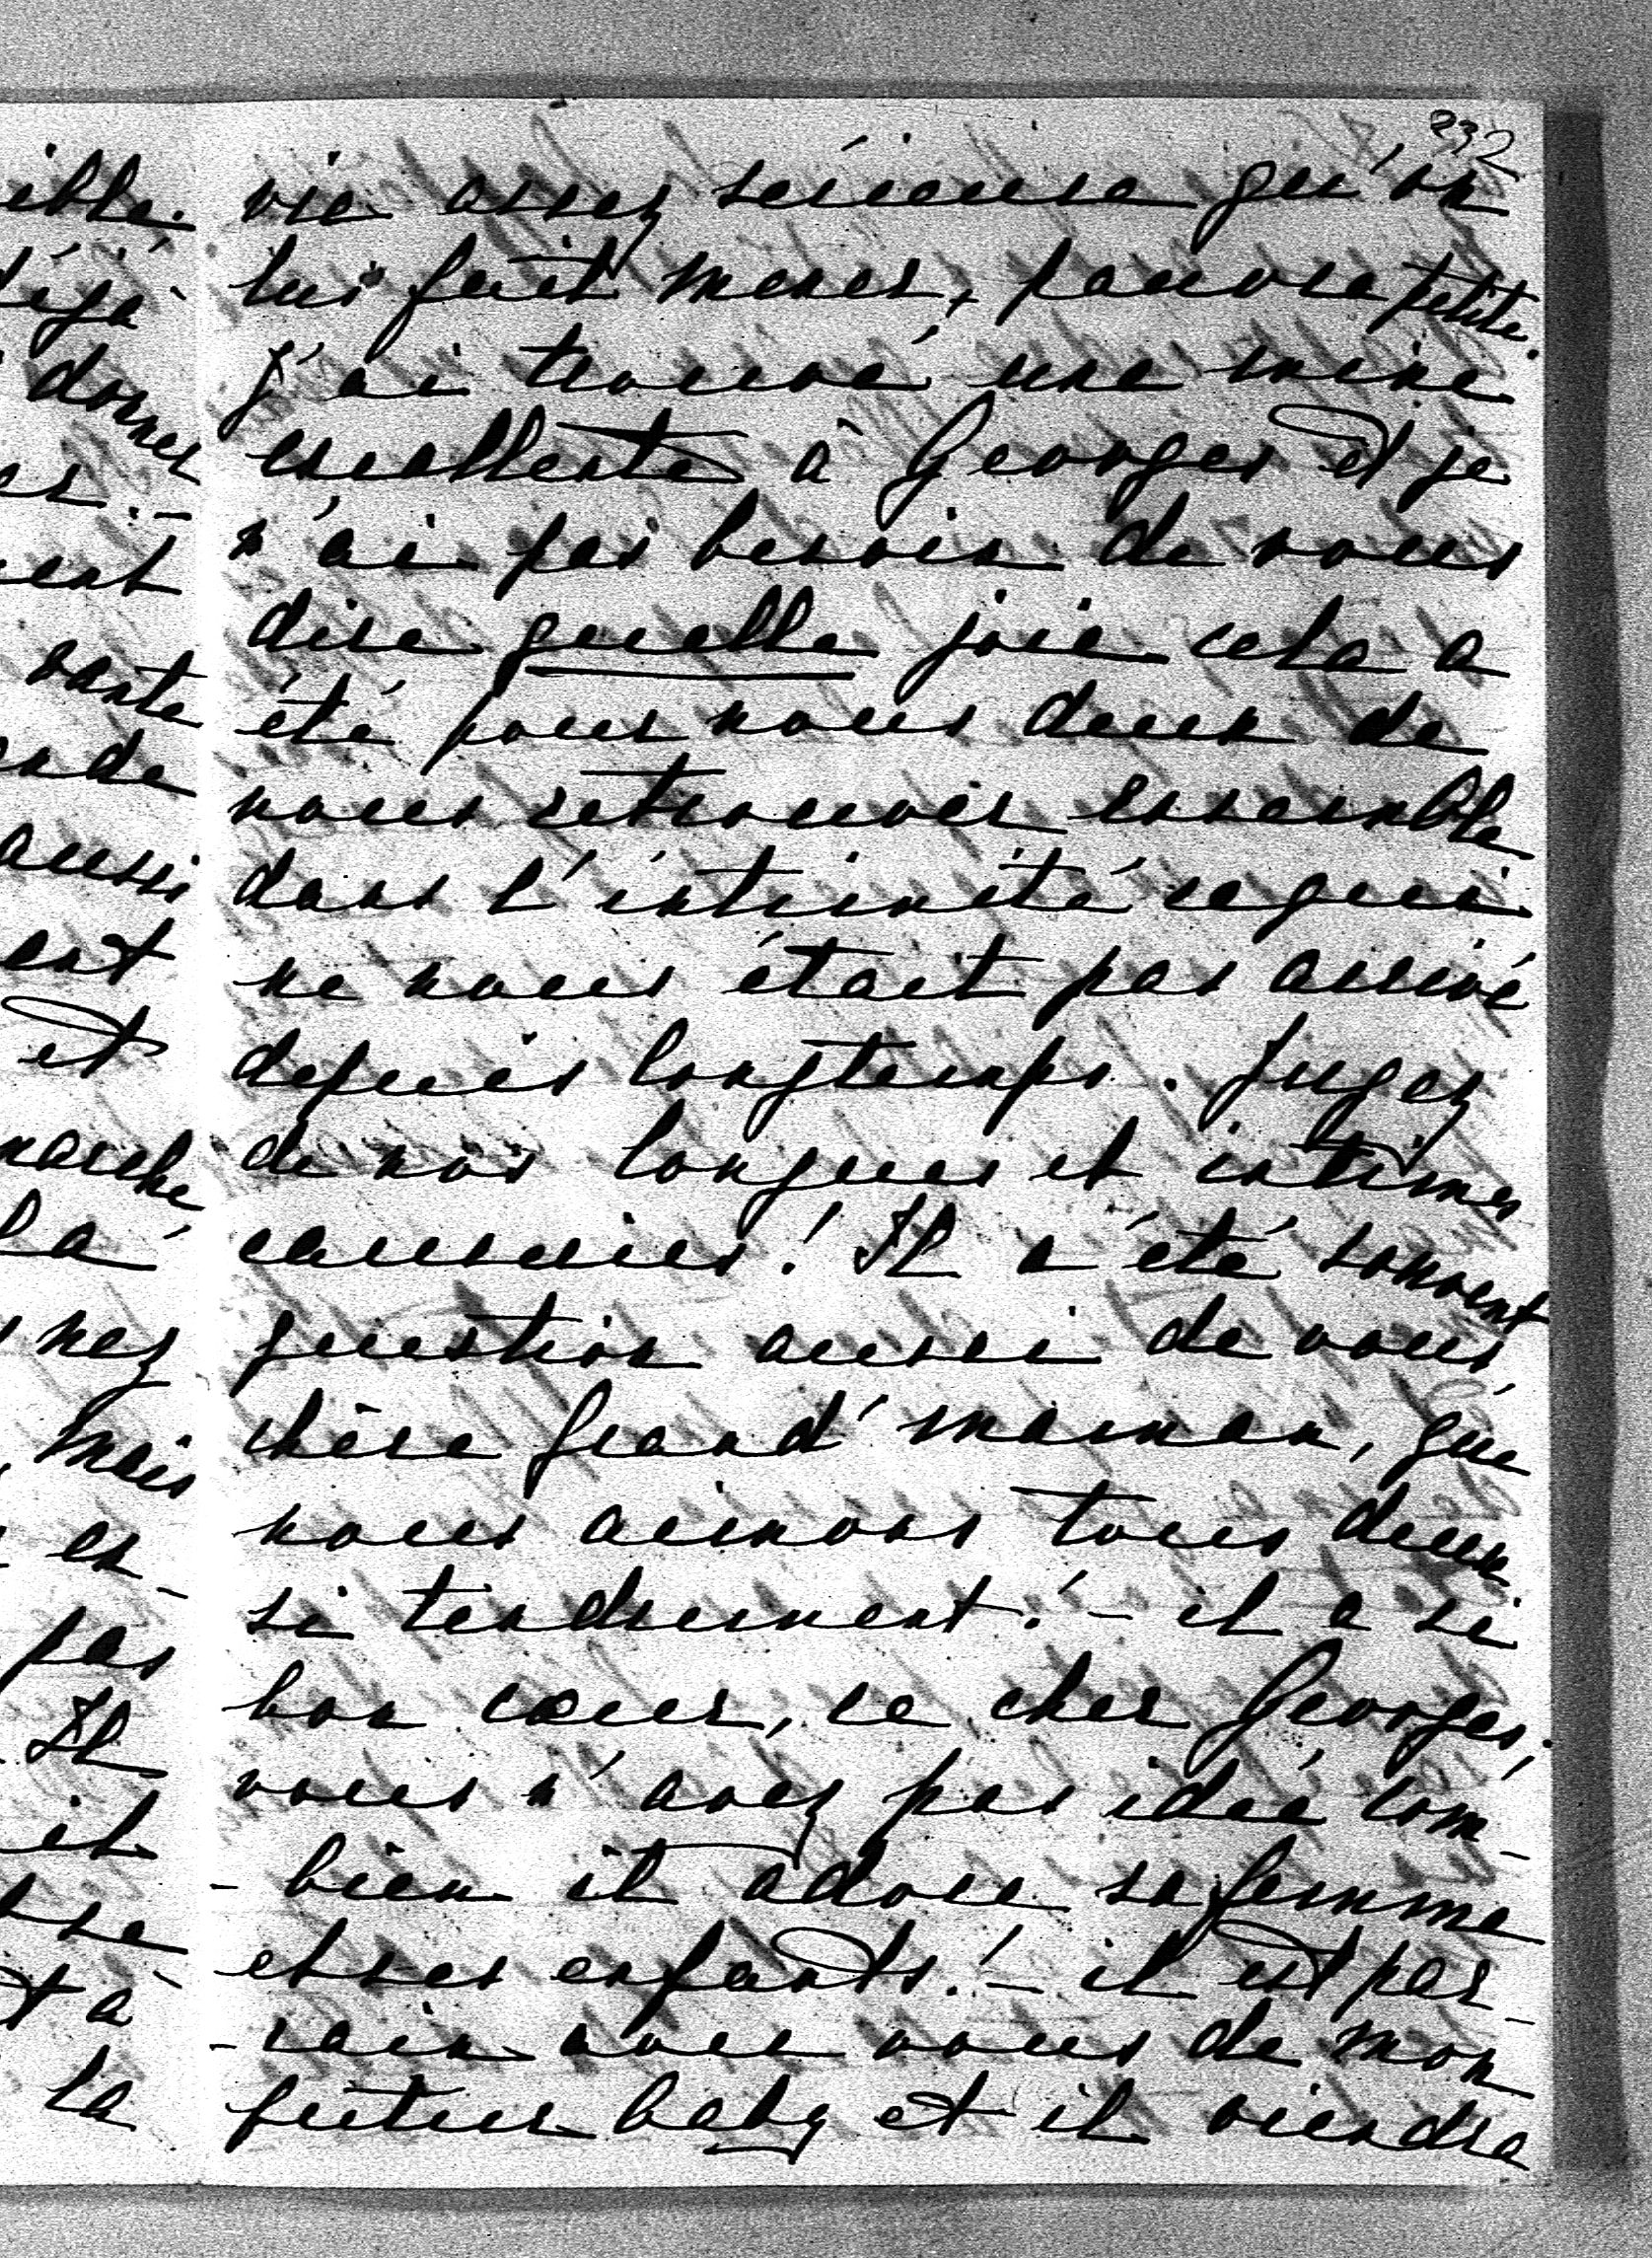 232
vie assez sérieuse qu'on
lui fait mener, pauvre petite.
J'ai trouvé une mine
excellente à Georges et je
n'ai pas besoin de vous
dire quelle joie cela a
été pour nous deux de
nous retrouver ensemble
dans l'intimité ce qui
ne nous était pas arrivé
depuis longtemps. Jugez
de nos longues et intimes
causeries! Il a été souvent
question aussi de vous
chère grand'maman, que
nous aimons tous deux
si tendrement! - il a si
bon cœur, ce cher Georges,
vous n'avez pas idée com-
- bien il adore sa femme
et ses enfants! - il est par-
- rain avec vous de mon
futur baby et il viendra
déjà
donner
vante
aussi
et
là
nez
mais
en-
pas
Il
il
la